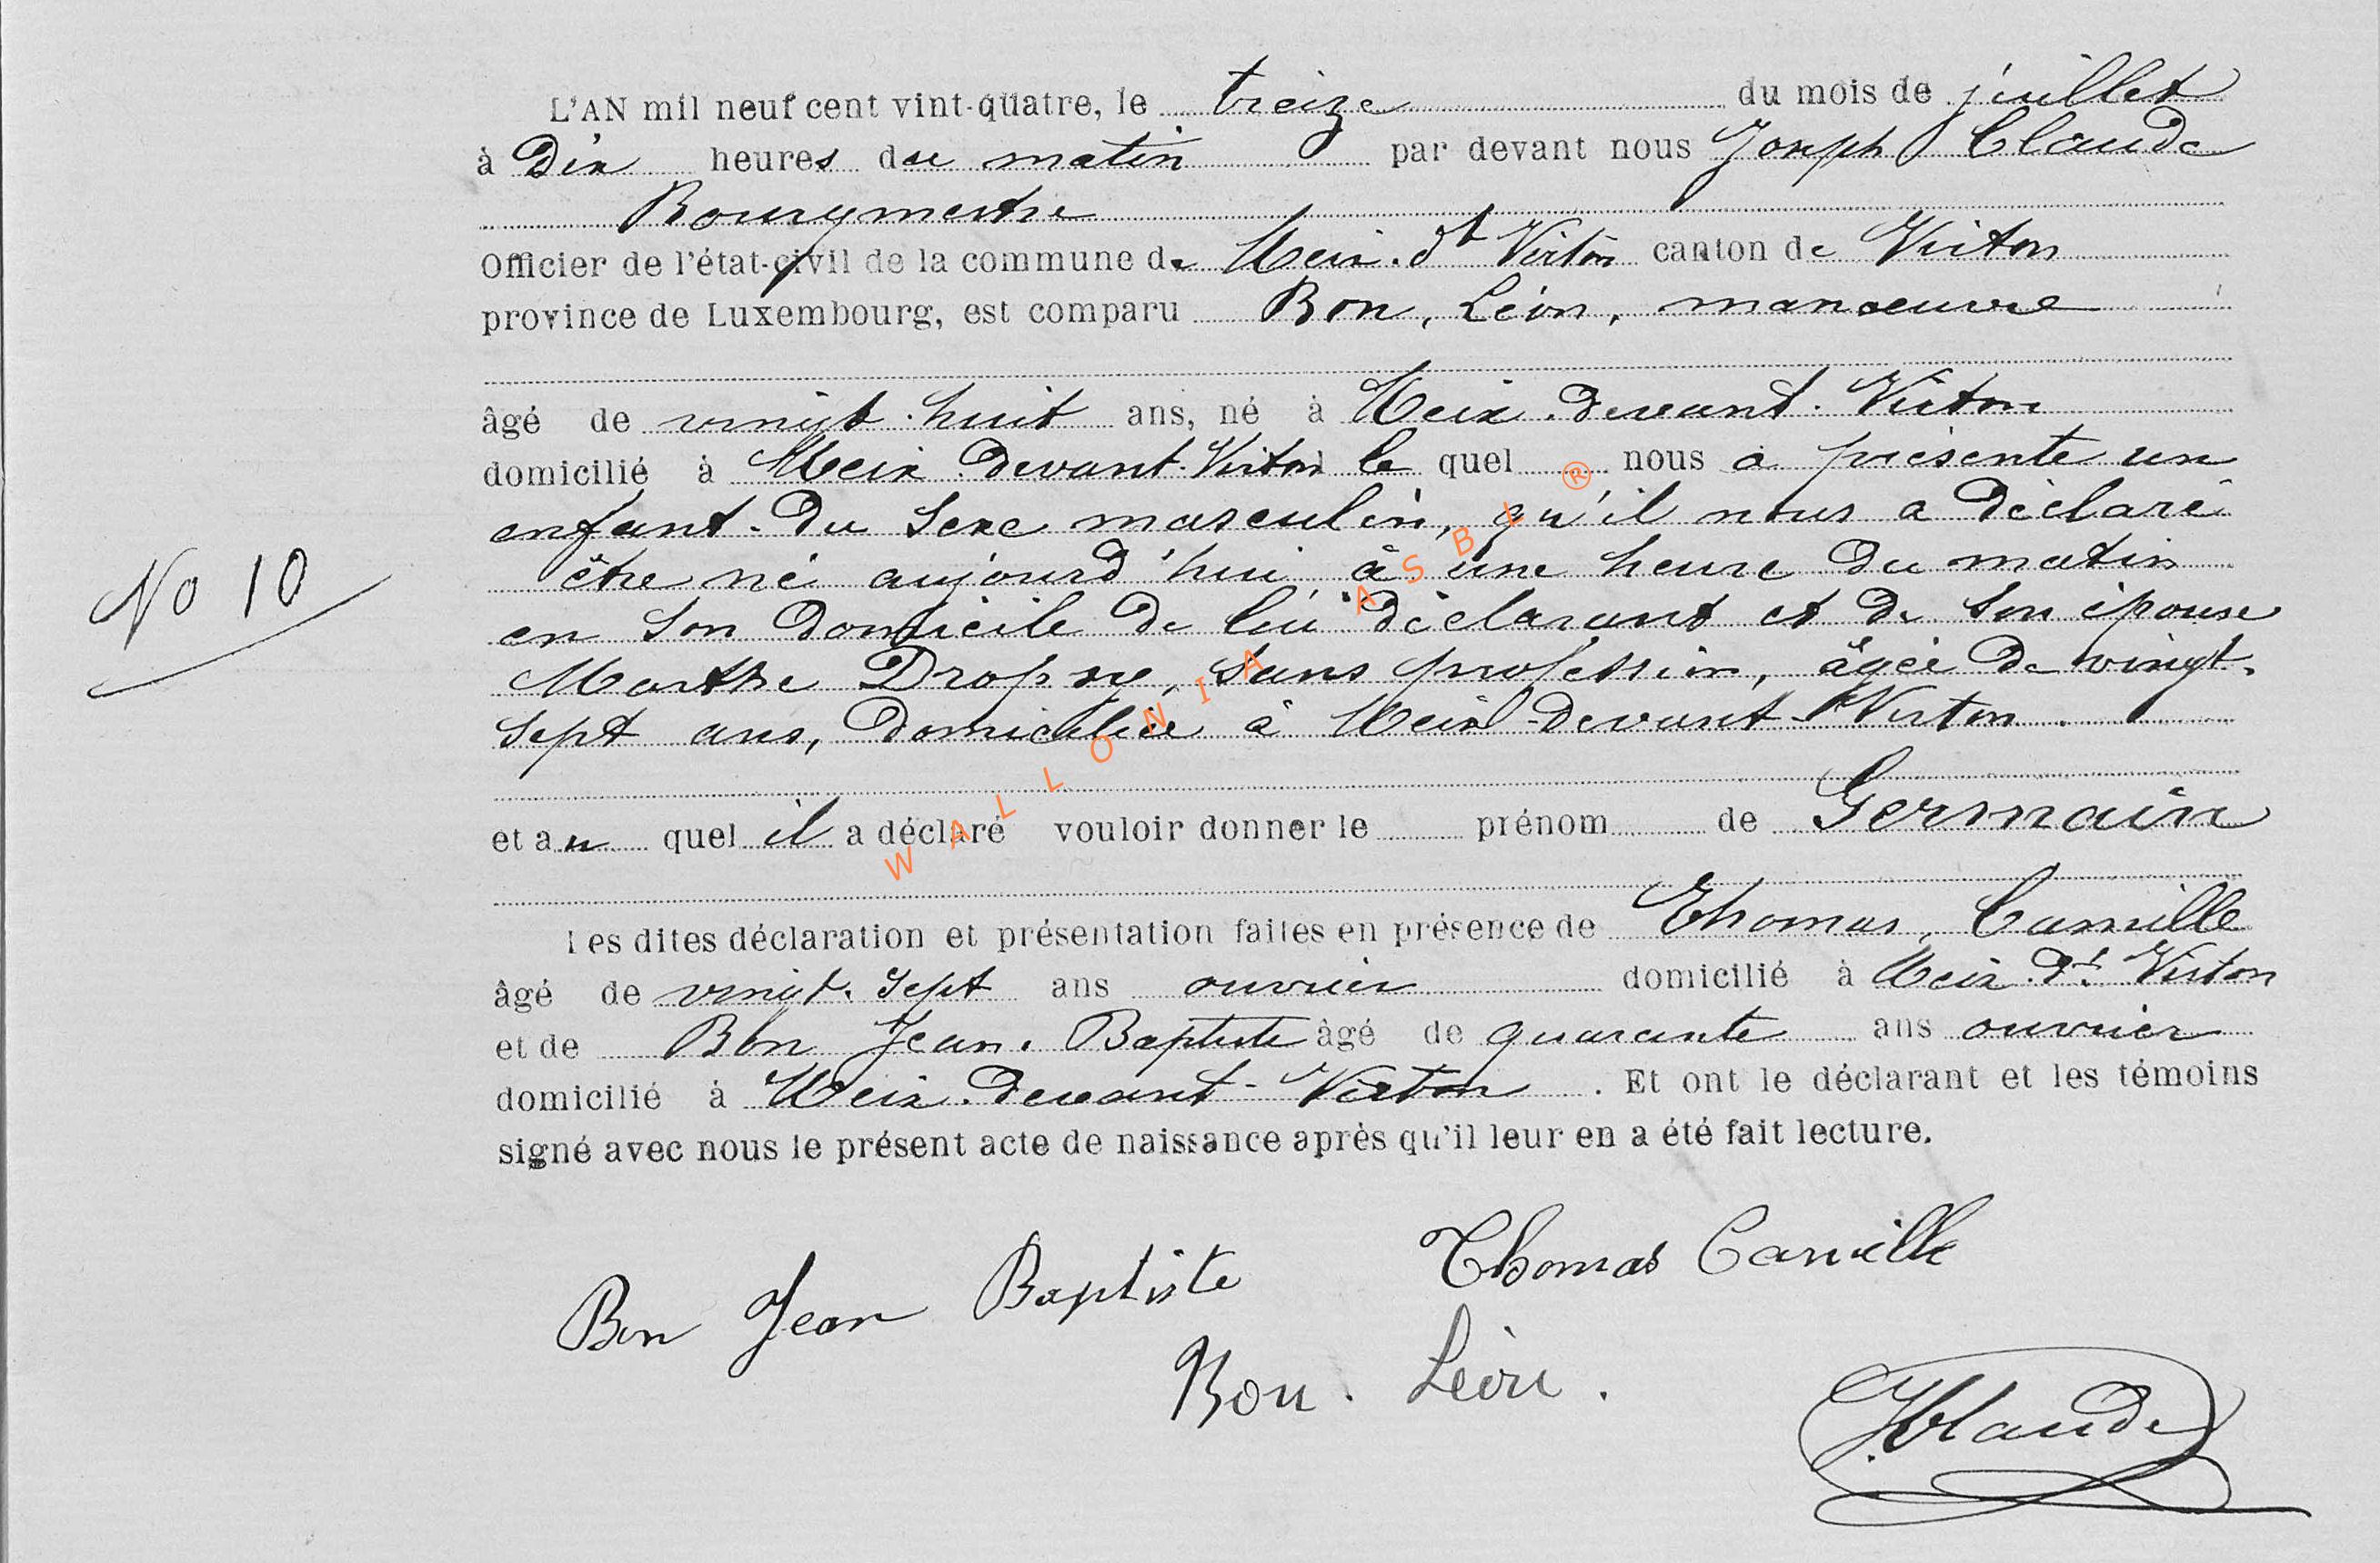 L'AN mil neuf cent vint-quatre, le treize du mois de juillet
à Dix heures du matin par devant nous Joseph Claude
Bourgmestre
Officier de l'état-civil de la commune de Meix-dt Virton canton de Virton
province de Luxembourg, est comparu Bon, Léon, manoeuvre
âgé de vingt-huit ans, né à Meix-devant-Virton
domicilié à Meix devant-Virton le quel nous a présenté un
No 10
enfant du sexe masculin, qu'il nous a déclaré
être né aujourd'hui à une heure du matin
en son domicile de lui déclarant et de son épouse
Marthe Dropsy, sans profession, âgée de vingt-
sept ans, domiciliée à Meix-devant-Virton.
et au quel il a déclaré vouloir donner le prénom de Germain
Les dites déclaration et présentation faites en présence de Thomas, Camille
âgé de vingt-sept ans ouvrier domicilié à Meix-dt Virton
et de Bon Jean-Baptiste âgé de quarante ans ouvrier
domicilié à Meix-devant-Virton. Et ont le déclarant et les témoins
signé avec nous le présent acte de naissance après qu'il leur en a été fait lecture.
Bon Jean Baptiste Thomas Camille
Bon. Léon.
JClaude
WALLONIA ASBL ®